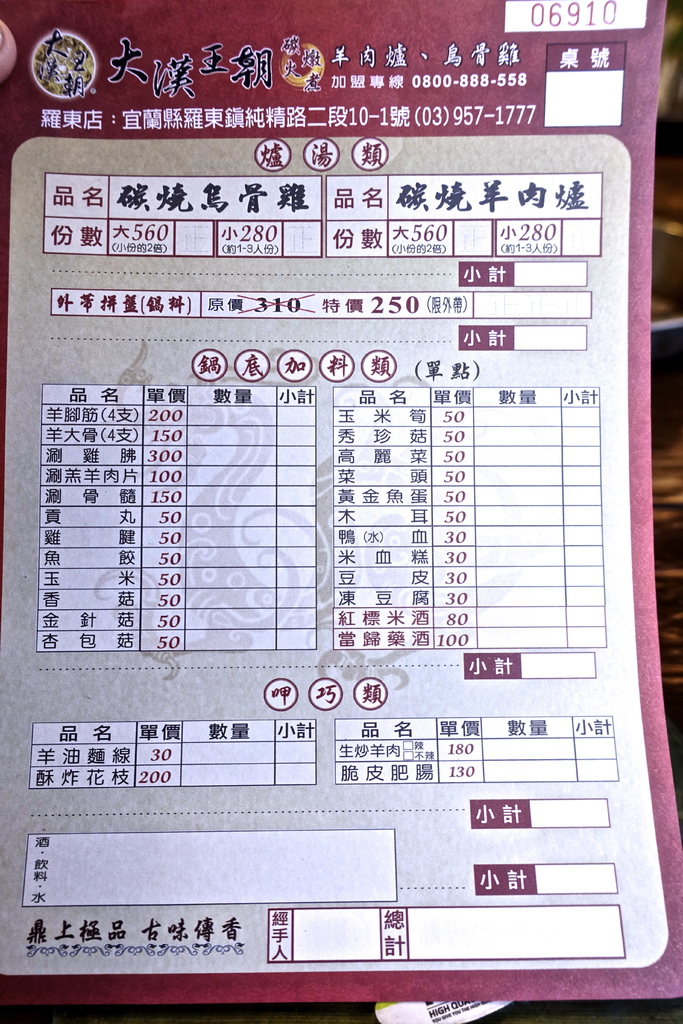 06910
大漢王朝
大漢王朝 碳火燉煮 羊肉爐、烏骨雞
加盟專線 0800-888-558
桌號
羅東店：宜蘭縣羅東鎮純精路二段10-1號 (03)957-1777
爐湯類
品名 碳燒烏骨雞 品名 碳燒羊肉爐
份數 大560 (小份的2倍) 小280 (約1-3人份) 份數 大560 (小份的2倍) 小280 (約1-3人份)
小計
外帶拼盤(鍋料) 原價 310 特價 250 (限外帶)
小計
鍋底加料類 (單點)
品名 單價 數量 小計 品名 單價 數量 小計
羊腳筋(4支) 200 玉米筍 50
羊大骨(4支) 150 秀珍菇 50
涮雞胇 300 高麗菜 50
涮羔羊肉片 100 菜頭 50
涮骨髓 150 黃金魚蛋 50
貢丸 50 木耳 50
雞腱 50 鴨(水)血 30
魚餃 50 米血糕 30
玉米 50 豆皮 30
香菇 50 凍豆腐 30
金針菇 50 紅標米酒 80
杏包菇 50 當歸藥酒 100
小計
呷巧類
品名 單價 數量 小計 品名 單價 數量 小計
羊油麵線 30 生炒羊肉 □辣 □不辣 180
酥炸花枝 200 脆皮肥腸 130
小計
酒·飲料·水
小計
鼎上極品 古味傳香
經手人
總計
HIGH QUA